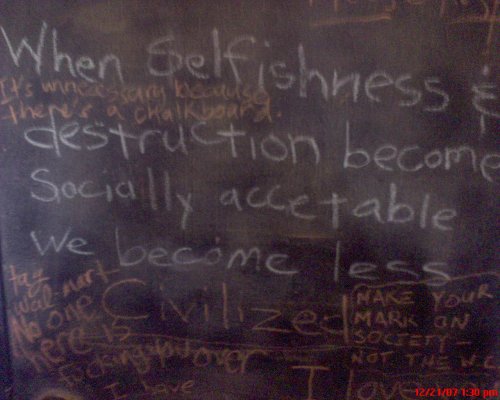 When Selfishness &
It's unnecessary because
there's a chalkboard.
destruction become
Socially accetable
We become less
Civilized
tag
wal-mart
No one
here is
over
I have
MAKE YOUR
MARK ON
SOCIETY-
NOT THE W.C
I love
12/21/07 1:30 pm